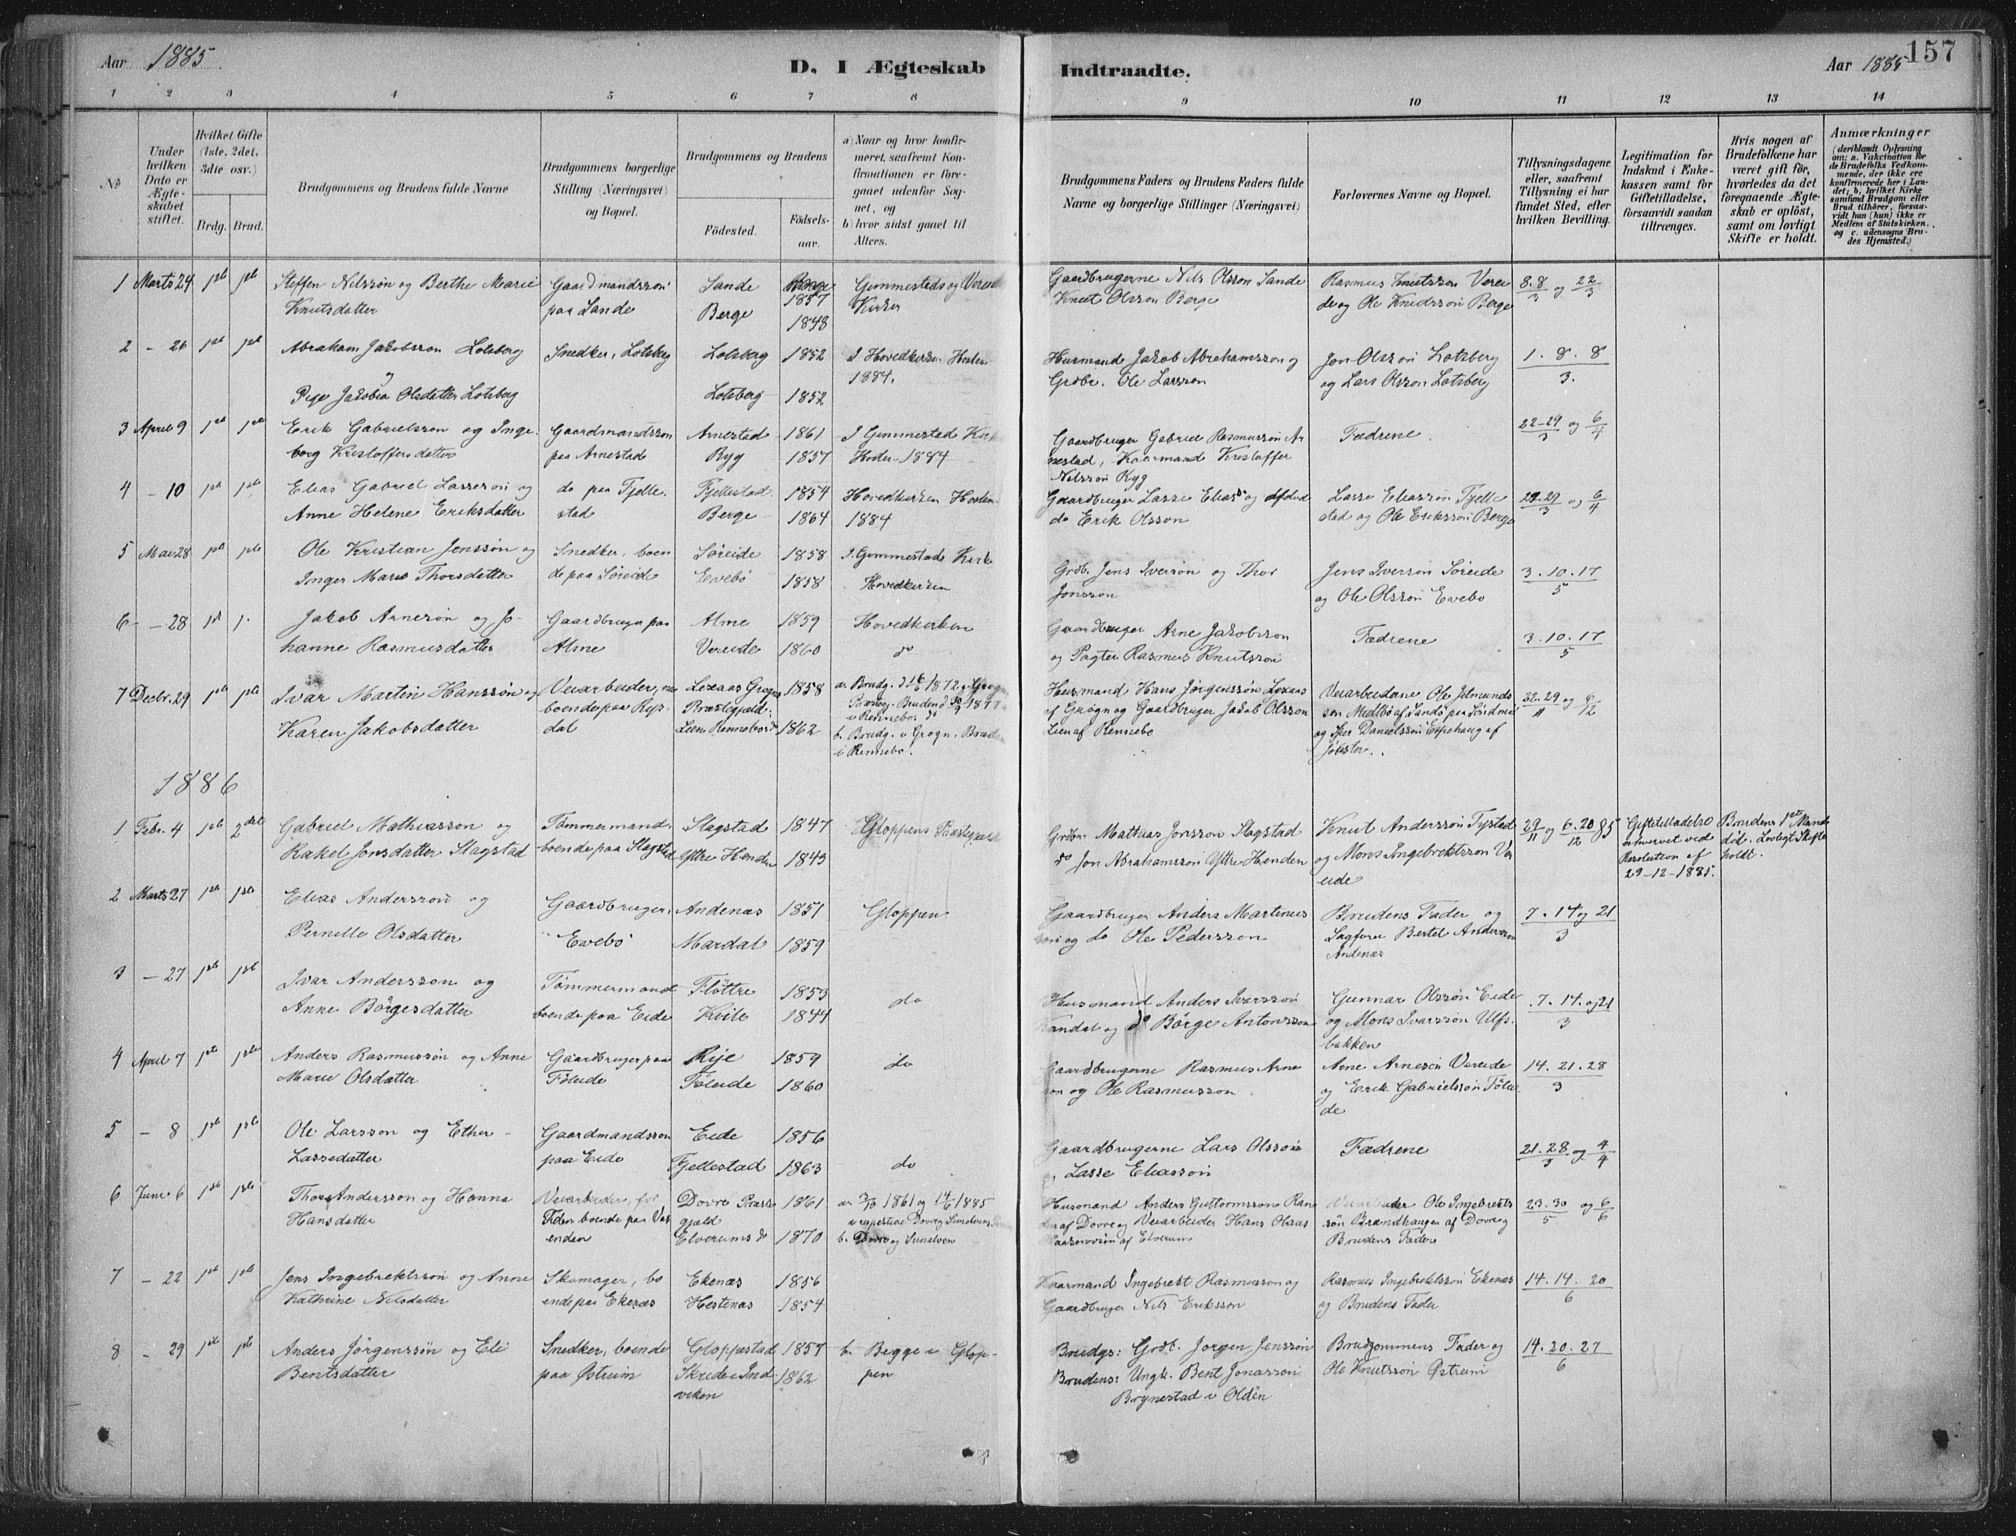 Aar 1885. D. I Ægteskab Indtraadte. Aar 1885 157
1 2 3 4 5 6 7 8 9 10 11 12 13 14
No
Under hvilken Dato er Ægteskabet stiftet.
Hvilket Gifte (1ste, 2det, 3die osv.)
Brdg. Brud.
Brudgommens og Brudens fulde Navne
Brudgommens borgerlige Stilling (Næringsvei) og Bopæl.
Brudgommens og Brudens
Fødested. Fødselsaar.
a) Naar og hvor konfirmeret, saafremt Konfirmationen er foregaaet udenfor Sognet, og
b) hvor sidst gaaet til Alters.
Brudgommens Faders og Brudens Faders fulde Navne og borgerlige Stillinger (Næringsvei)
Forlovernes Navne og Bopæl.
Tillysningsdagene eller, saafremt Tillysning ei har fundet Sted, efter hvilken Bevilling.
Legitimation for Indskud i Enkekassen samt for Giftetilladelse, forsaavidt saadan tiltrænges.
Hvis nogen af Brudefolkene har været gift før, hvorledes da det foregaaende Ægteskab er opløst, samt om lovligt Skifte er holdt.
Anmærkninger (deriblandt Oplysning om: a. Vakcination for de Brudefolks Vedkommende, der ikke ere konfirmerede her i Landet; b. hvilket Kirkesamfund Brudgom eller Brud tilhører, forsaavidt han (hun) ikke er Medlem af Statskirken. og c. udensogns Brudes Hjemsted.)
1 Marts 24 1ste 1ste Steffen Nilssøn og Berthe Marie Gaardmandssøn Sande 1857 Gimmestads og Vereide Gaardbrugerne Nils Olsson Sande Rasmus Knutsson Verei 8.8/3 og 22/3
Knutsdatter paa Sande Berge 1848 Kirker Knut Olsson Berge de og Ole Knudssøn Berge
2 - 26 1ste 1ste Abraham Jakobsson Lotsberg Snedker, Lotsberg Lotsberg 1852 I Hovedkirken Høsten Husmand Jakob Abrahamsson og Jon Olsson Lotsberg 1. 8. 8
og 1884. Grdbr. Ole Larsson og Lars Olsson Lotsberg 3.
Pige Jakobia Olsdatter Lotsberg Lotsberg 1852
3 April 9 1ste 1ste Erik Gabrielsson og Inge Gaardmandssøn Arnestad 1861 I Gimmestad Kirke Gaardbruger Gabriel Rasmussøn Ar Fædrene. 22-29/3 og 6/4
borg Kristoffersdatter paa Arnestad Ryg 1857 Høsten 1884 nestad, Kaarmand Kristoffer
Nilssøn Ryg
4 - 10 1ste 1ste Elias Gabriel Lassesøn og do paa Fjelle Fjellestad 1854 Hovedkirken Høsten Gaardbruger Lasse Eliass Lasse Eliassøn Fjelle 22.29/3 og 6/4
Anne Helene Eriksdatter stad Berge 1864 1884 do Erik Olsson stad og Ole Eriksson Berge
5 Mai 28 1ste 1ste Ole Kristian Jenssøn og Snedker, boen Søreide 1858 I Gimmestads Kirke Grdb. Jens Iversøn og Thor Jens Iversøn Søreide 3. 10. 17
Inger Marie Thorsdatter de paa Søreide Evebø 1858 Hovedkirken Jonssøn og Ole Olssøn Evebø 5
6 - 28 1st 1. Jakob Arnesøn og Jo Gaardbruger paa Alme 1859 Hovedkirken Gaardbruger Arne Jakobsson Fædrene 3. 10. 17
hanne Rasmusdatter Alme Vereide 1860 do og Pagter Rasmus Knutssøn 5
7 Decbr. 29 1ste 1ste Ivar Martin Hanssøn og Veiarbeider, nu 1858 Husmand Hans Jørgenssøn Veiarbeiderne Ole 22.29/11 og 6/12
Karen Jakobsdatter boende paa Rys Præstegjeld. af Grøgn og Gaardbruger Jakob Olsson
dal Lien Rennebo 1862 b. Brudg. i Grogn. Brud Lien af Rennebo og Danielssøn Espehaug af
i Rennebo. Jølster.
1886
1 Febr. 4 1ste 2det Gabriel Mathiasson og Tømmermand, Slagstad 1847 Gloppens Præstegjeld Grdbr. Mathias Jonsson Slagstad Knut Anderssøn Tystad 29/11 og 6.20/12 85 Giftetilladelse Brudens 1ste Mand
Rakel Jonsdatter Slagstad boende paa Slagstad Ytre Henden 1843 do Jon Abrahamssøn Ytre Henden og Mons Ingebrektsson Ver erhvervet ved død. Lovligt Skifte
eide Resolution af holdt.
29-12-1885.
2 Marts 27 1ste 1ste Elias Andersson og Gaardbruger, Andenæs 1851 Gloppen Gaardbruger Anders Martinus Brudens Fader og 7. 14 og 21
Pernille Olsdatter " Evebø Mardal 1859 søn og do Ole Pedersson Lagfører Bertel Andersson 3
Andenæs
3 - 27 1ste 1ste Ivar Andersson og Tømmermand Fløttre 1853 do Husmand Anders Iverssøn Gunnar Olssøn Eide 7. 14. og 21
Anne Børgesdatter boende paa Eide Kvile 1844 Kandal og do Børge Antonsson og Mons Ivarssøn Ulfs 3
bakken
4 April 7 1ste 1ste Anders Rasmussøn og Anne Gaardbruger paa Rye 1859 do Gaardbrugerne Rasmus Arne Arne Arnesøn Vereide 14. 21. 28
Marie Olsdatter Føleide Føleide 1860 son og Ole Rasmusson. og Erik Gabrielssøn Følei 3
de
5 - 8 1ste 1ste Ole Larsson og Ether Gaardmandssøn Eide 1856 Gaardbrugerne Lars Olssøn Fædrene 21. 28/3 og 4/4
Lassedatter paa Eide Fjellestad 1863 do og Lasse Eliassøn
6 Juni 6 1ste 1ste Thore Andersson og Hanna Veiarbeider, før Dovre Præste 1861 1861 og 14/6 1885 Husmand Anders Guttormsson Ran Veiarbeider Ole Ingebrekts 23. 30/5 og 6/6
Hansdatter Tiden boende paa Vas gjeld respective Dovre og af Dovre og Veiarbeider Hans Olsen søn Brændhaugen af Dovre og
enden Elverums do 1870 b. Dovre og Sunelven af Elverum Brudens Fader
7 - 22 1ste 1ste Jens Ingebrektssøn og Anne Skomager, bo Ekenæs 1856 Kaarmand Ingebrekt Rasmusson og Rasmus Ingebrektssøn Ekenæs 14. 14. 20
Kathrine Nilsdatter ende paa Ekenæs Hestenæs 1854 Gaardbruger Nils Eriksson og Brudens Fader 6
8 - 29 1ste 1ste Anders Jørgenssøn og Eli Snedker, boende Gloppestad 1857 b. Begge i Glop- Brudgs: Grdb. Jørgen Jenssøn Brudgommens Fader og 14. 20. 27
Bentsdatter paa Østrem Skrede i Ind 1862 pen Brudens: Ungk. Bent Jonassøn Ole Knutssøn Østrem 6
viken Brynestad i Olden